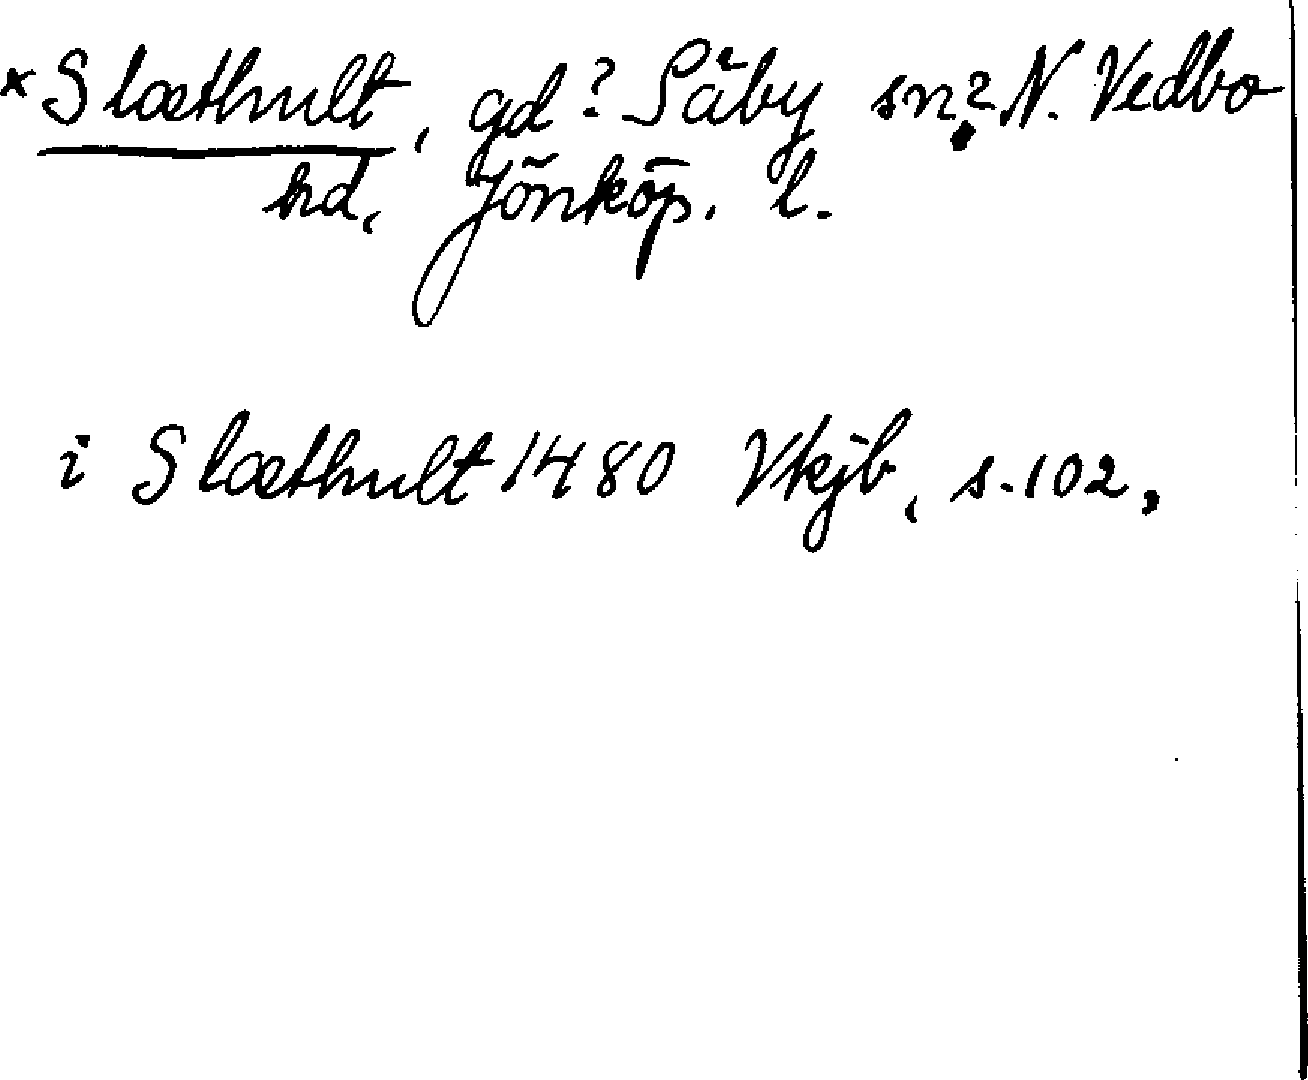 *Slæthult, gd? Säby sn? N. Vedbo
hd, Jönköp. l.
i Slæthult 1480 Vkjb, s. 102,